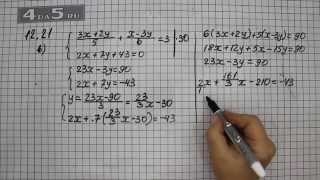 4A5.RU
12.21
б)
{ (3x+2y)/5 + (x-3y)/6 = 3 |·30
2x+7y+43=0
{ 23x-3y=90
2x+7y=-43
{ y = (23x-90)/3 = 23/3 x - 30
2x+·7(23/3 x-30)=-43
6(3x+2y)+5(x-3y)=90
18x+12y+5x-15y=90
23x-3y=90
2x + 161/3 x - 210 = -43